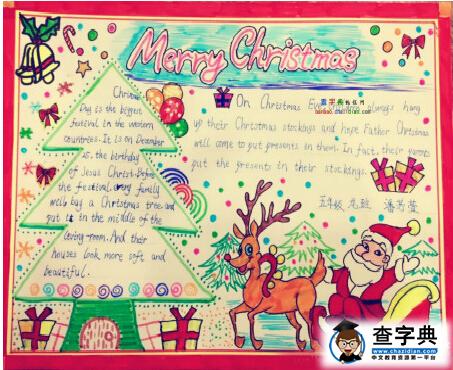 Merry Christmas
Christmas
Day is the biggest
festival in the western
countries. It is on December
is the birthday
of Jesus Christ. Before
the festival, every family
will buy a Christmas tree and
put it in the middle of the
living-room. And their
houses look more soft and
beautiful.
On Christmas Eve always hang
up their Christmas stockings and hope Father Christmas
will come to put presents in them. In fact, their parents
put the presents in their stockings.
五年级
查字典
查字典
www.chazidian.com
中文教育资源第一平台